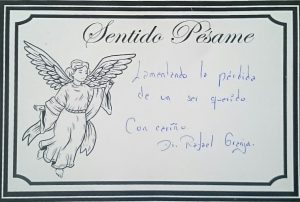 Sentido Pésame
Lamentando la pérdida
de un ser querido
Con cariño.
Dr. Rafael